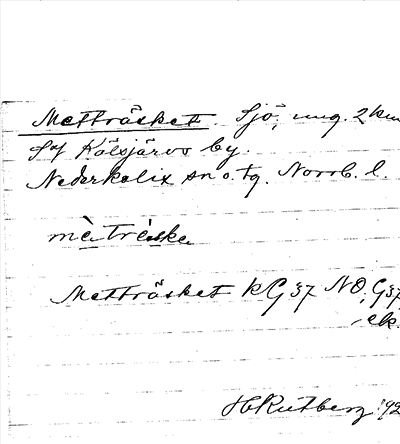 Metträsket. Sjö, ung. 2 km
SV Kälsjärvs by.
Nederkalix sn o. tg. Norrb. l.
mètrèske
Metträsket KG 37 NO, G37
ek.
H Rutberg '92